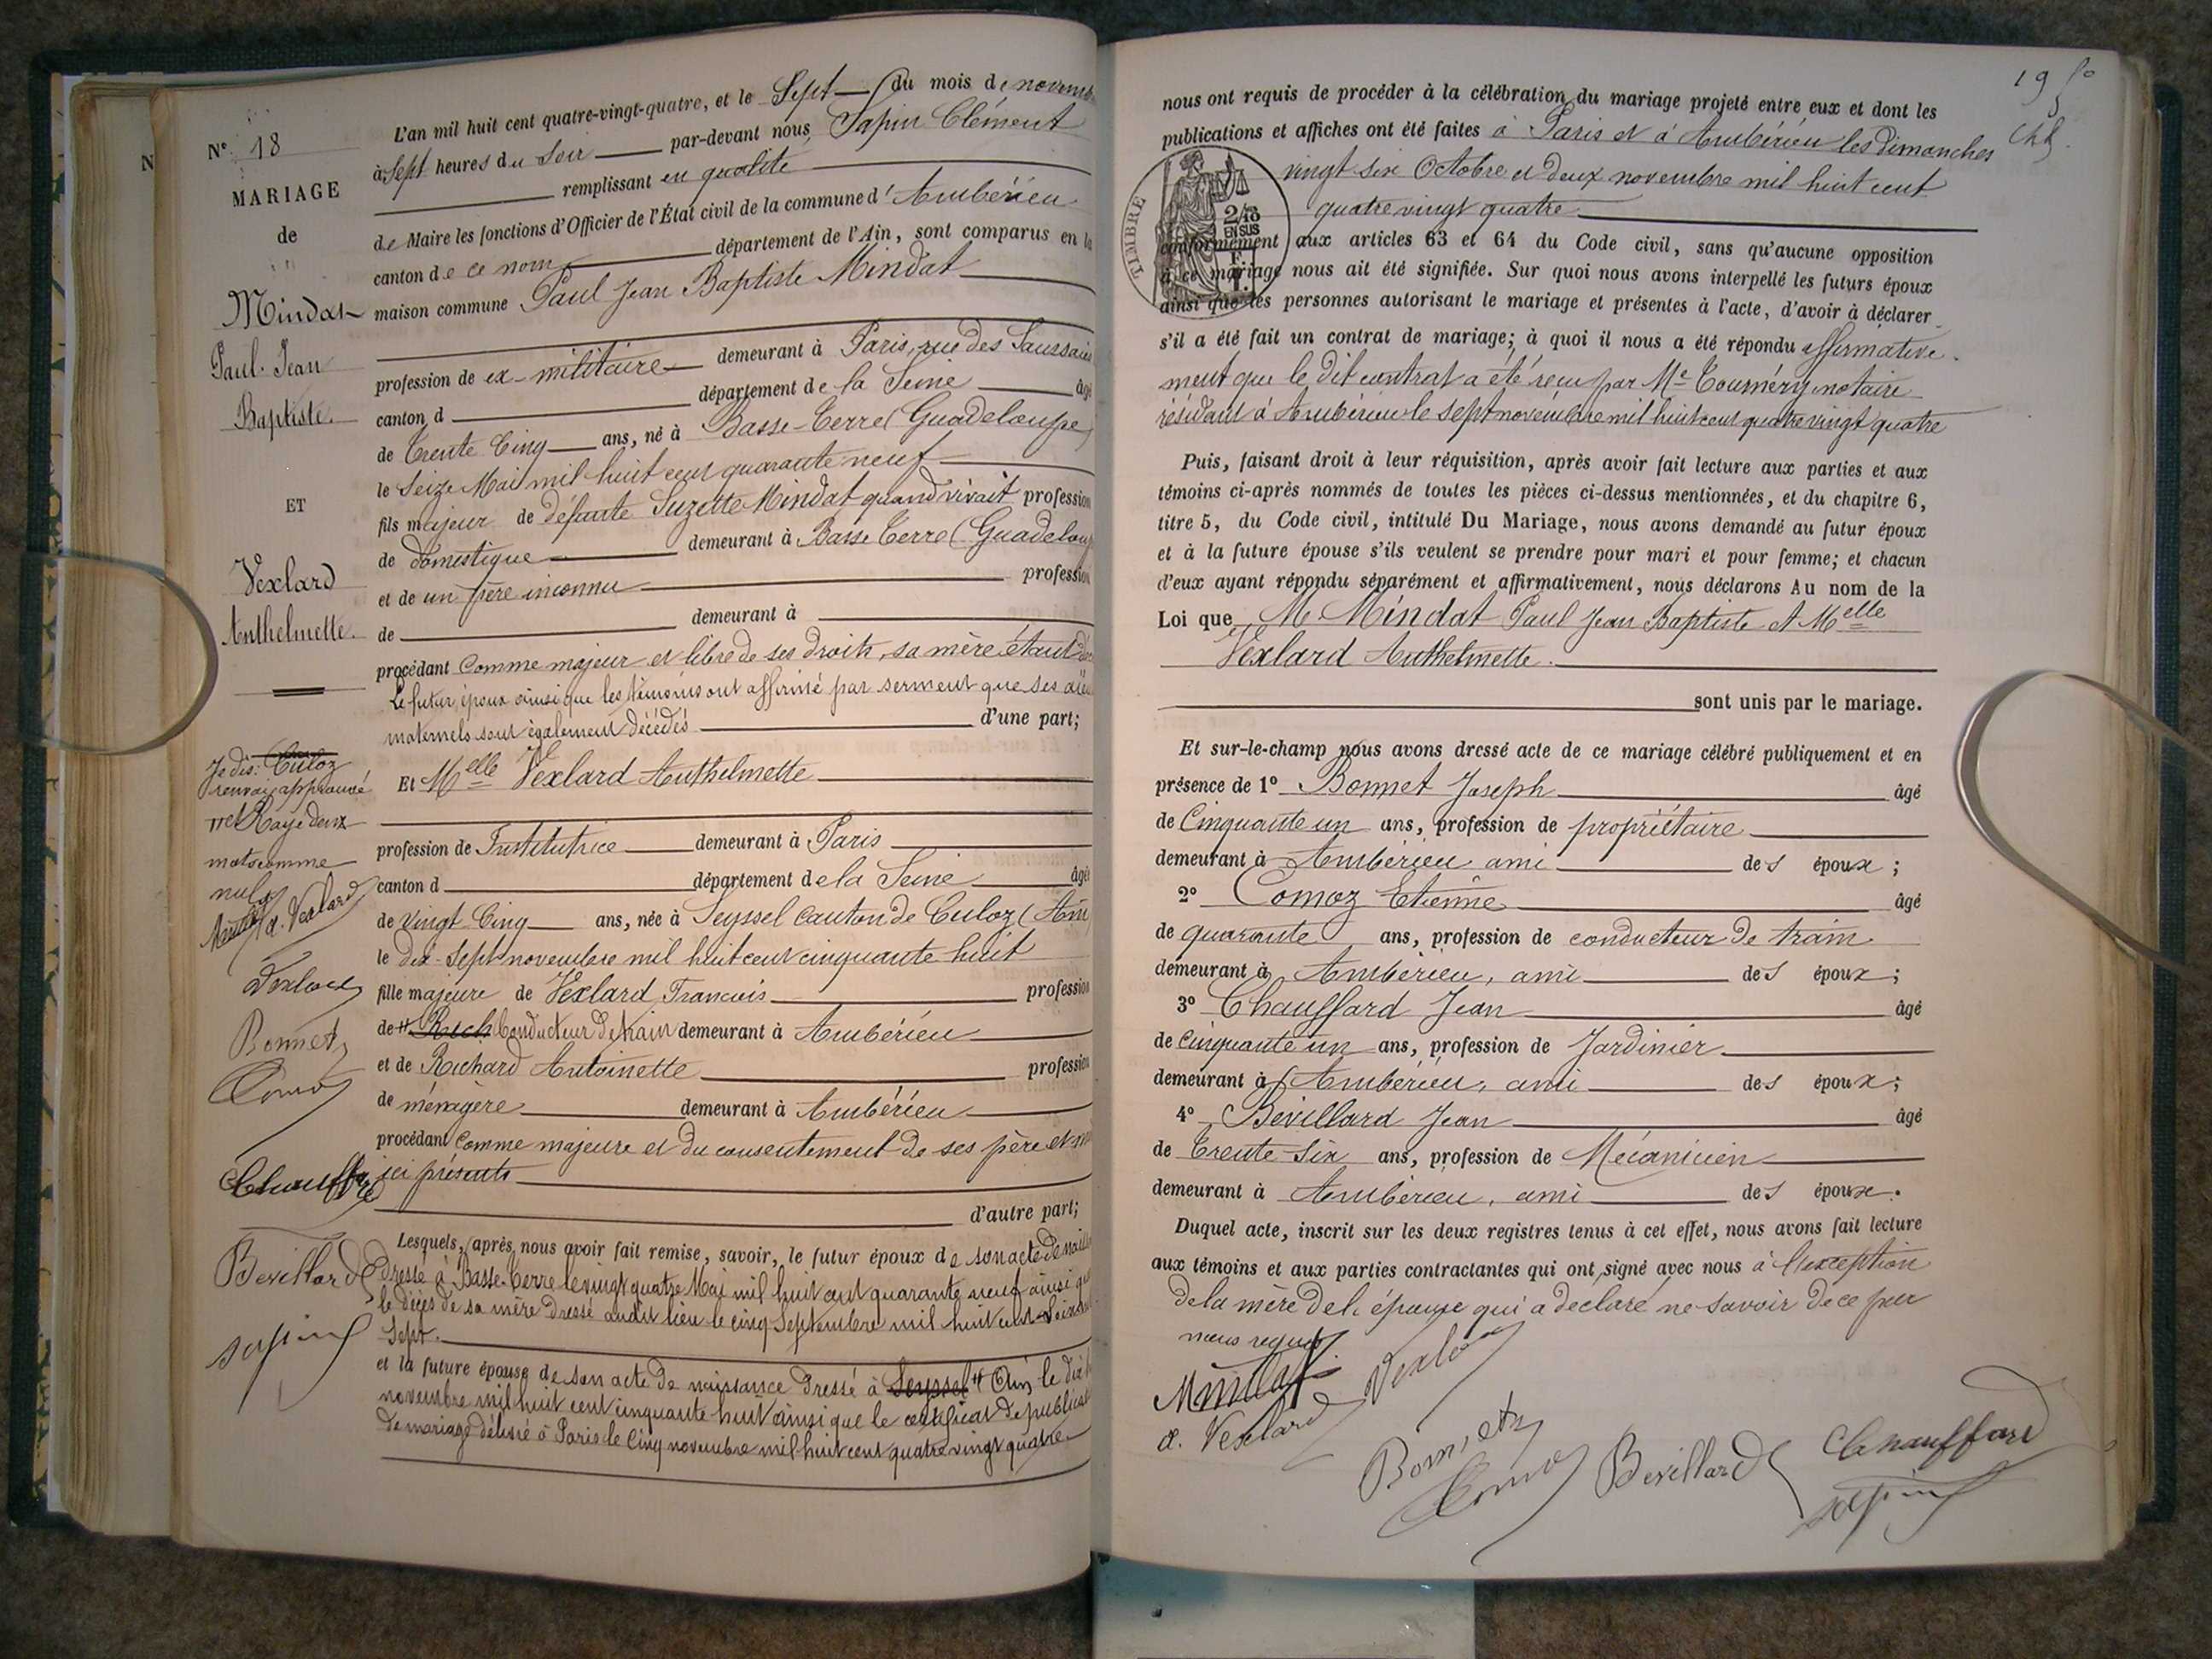 N° 18
MARIAGE
de
Mindat
Paul Jean
Baptiste.
ET
Vexlard
Anthelmette.
Je dis: Culoz
renvoi approuvé
et Rayé deux
mots comme
nuls
Mindat a. Vexlard
Vexlard
Bonnet
Comoz
Chauffard
Bevillard
Sapin
L'an mil huit cent quatre-vingt-quatre, et le Sept du mois de novemb
à Sept heures du Soir par-devant nous Sapin Clément
remplissant en qualité
de Maire les fonctions d'Officier de l'État civil de la commune d'Ambérieu
canton de ce nom département de l'Ain, sont comparus en la
maison commune Paul Jean Baptiste Mindat
profession de ex-militaire demeurant à Paris, rue des Saussaies
canton d département de la Seine âgé
de Trente Cinq ans, né à Basse-Terre (Guadeloupe)
le Seize Mai mil huit cent quarante neuf
fils majeur de défunte Suzette Mindat quand vivait profession
de domestique demeurant à Basse Terre (Guadeloup
et de un père inconnu profession
de demeurant à
procédant comme majeur et libre de ses droits, sa mère étant
Le futur époux ainsi que les témoins ont affirmé par serment que ses aïeu
maternels sont également décédés d'une part;
Et Melle Vexlard Anthelmette
profession de Institutrice demeurant à Paris
canton d département de la Seine âgée
de Vingt Cinq ans, née à Seyssel canton de Culoz (Ain
le dix-sept novembre mil huit cent cinquante huit
fille majeure de Vexlard Francois profession
de Ruch Conducteur de train demeurant à Ambérieu
et de Richard Antoinette profession
de ménagère demeurant à Ambérieu
procédant comme majeure et du consentement de ses père et m
ici présents
d'autre part;
Lesquels, après nous avoir fait remise, savoir, le futur époux de son acte de naiss
dressé à Basse-Terre le vingt quatre Mai mil huit cent quarante neuf ainsi que
le décès de sa mère dressé audit lieu le cinq Septembre mil huit cent soixan
Sept.
et la future épouse de son acte de naissance dressé à Seyssel Ain le dix h
novembre mil huit cent cinquante huit ainsi que le certificat de publicat
de mariage délivré à Paris le Cinq novembre mil huit cent quatre vingt quatre
19
nous ont requis de procéder à la célébration du mariage projeté entre eux et dont les
publications et affiches ont été faites à Paris et à Ambérieu les dimanches
vingt six Octobre et deux novembre mil huit cent
quatre vingt quatre
TIMBRE
2/10
EN SUS
conformément aux articles 63 et 64 du Code civil, sans qu'aucune opposition
à ce mariage nous ait été signifiée. Sur quoi nous avons interpellé les futurs époux
ainsi que les personnes autorisant le mariage et présentes à l'acte, d'avoir à déclarer
s'il a été fait un contrat de mariage; à quoi il nous a été répondu affirmative-
ment que le dit contrat a été reçu par Me Tournéry notaire
résidant à Ambérieu le sept novembre mil huit cent quatre vingt quatre
Puis, faisant droit à leur réquisition, après avoir fait lecture aux parties et aux
témoins ci-après nommés de toutes les pièces ci-dessus mentionnées, et du chapitre 6,
titre 5, du Code civil, intitulé Du Mariage, nous avons demandé au futur époux
et à la future épouse s'ils veulent se prendre pour mari et pour femme; et chacun
d'eux ayant répondu séparément et affirmativement, nous déclarons Au nom de la
Loi que M. Mindat Paul Jean Baptiste et Melle
Vexlard Anthelmette.
sont unis par le mariage.
Et sur-le-champ nous avons dressé acte de ce mariage célébré publiquement et en
présence de 1° Bonnet Joseph âgé
de Cinquante un ans, profession de propriétaire
demeurant à Ambérieu ami des époux;
2° Comoz Etienne âgé
de quarante ans, profession de conducteur de train
demeurant à Ambérieu, ami des époux;
3° Chauffard Jean âgé
de cinquante un ans, profession de Jardinier
demeurant à Ambérieu, ami des époux;
4° Bévillard Jean âgé
de Trente Six ans, profession de Mécanicien
demeurant à Ambérieu, ami des époux.
Duquel acte, inscrit sur les deux registres tenus à cet effet, nous avons fait lecture
aux témoins et aux parties contractantes qui ont signé avec nous à l'exception
de la mère de l'épouse qui a déclaré ne savoir de ce par
nous requis
Mindat Vexlard
a. Vexlard
Bonnet
Comoz Bevillard Chauffard
Sapin